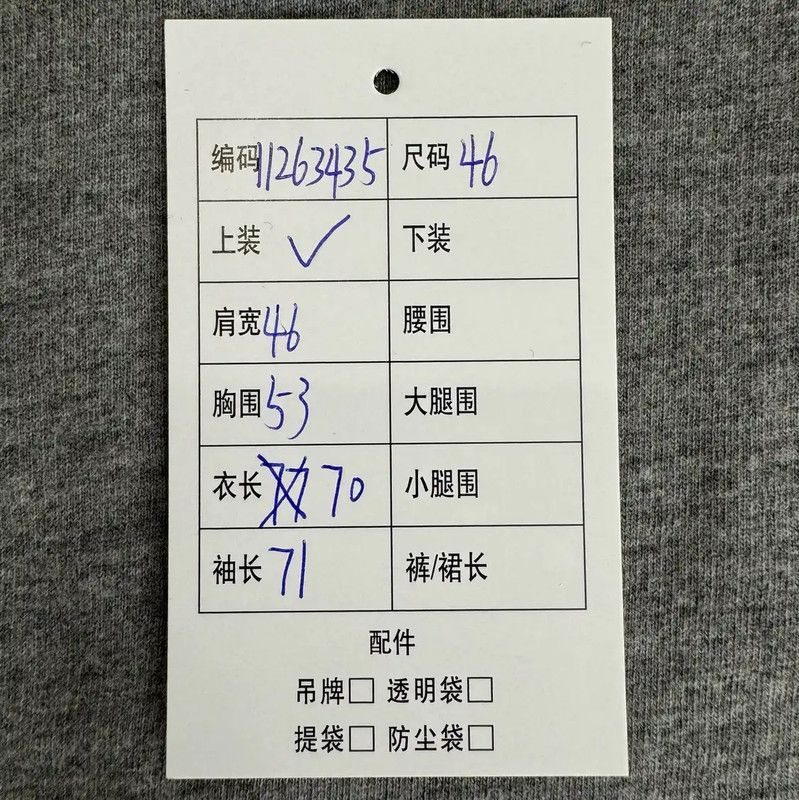 编码11263435 尺码46
上装✓ 下装
肩宽46 腰围
胸围53 大腿围
衣长70 小腿围
袖长71 裤/裙长
配件
吊牌□ 透明袋□
提袋□ 防尘袋□